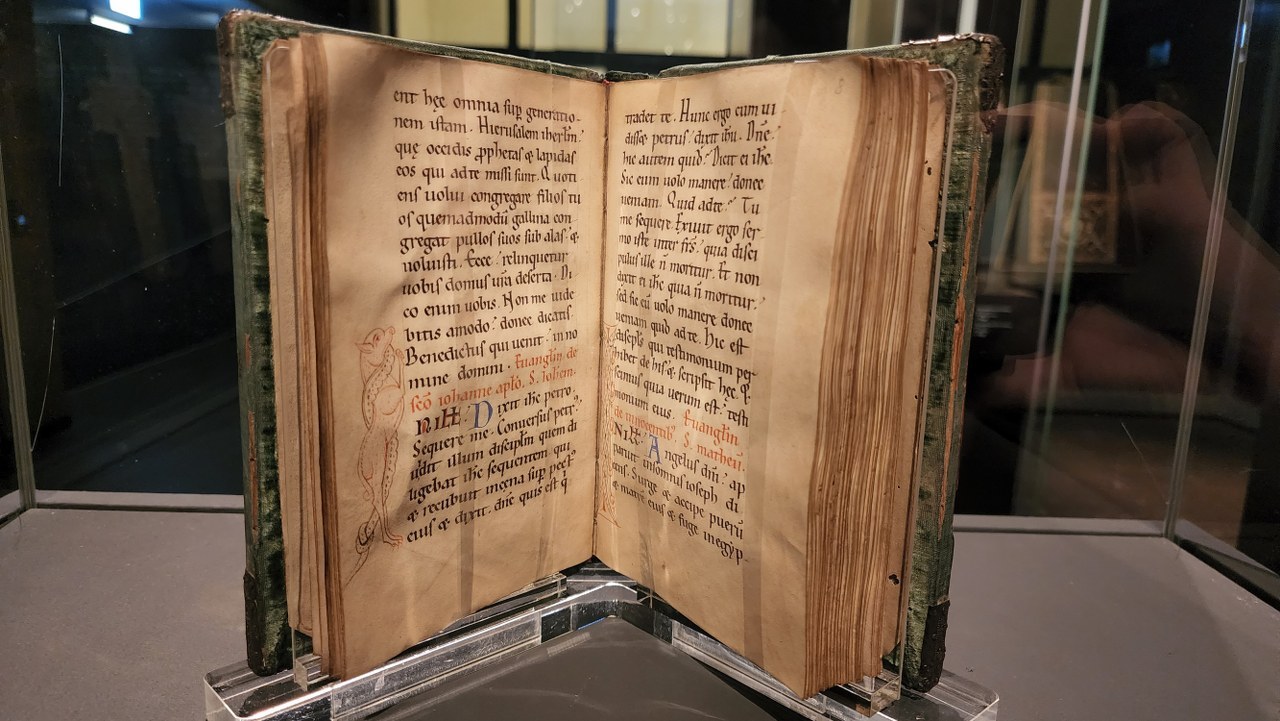 ent hęc omnia sup generatio-
nem istam. Hierusalem ihersłm.
quę occidis ꝓphetas & lapidas
eos qui adte missi sunt. Quoti
ens uolui congregare filios tu
os quemadmodū gallina con
gregat pullos suos sub alas &
noluisti. Ecce relinquetur
uobis domus uṙa deserta. Di
co enim uobis. Non me uide
bitis amodo. donec dicatis.
Benedictus qui uenit in no
mine domini. Euangłm de
sc̄o iohanne apłō. S. iohem.
IN ILLo Dixit ihc petro.
Sequere me. Conuersus petr᷒.
uidit illum discipłm quem di
ligebat ihc sequentem. qui
& recubuit incena sup pect᷒
eius & dixit. dn̄e quis est q̇
tradet te. Hunc ergo cum ui
disset petrus. dixit ihu. Dn̄e.
hic autem quid? Dicit ei ihc.
Sic eum uolo manere donec
ueniam. Quid adte? Tu
me sequere. Exiuit ergo ser
mo iste inter frs̄. quia disci
pulus ille n̄ moritur. Et non
dixit ei ihc quia n̄ moritur.
sed sic eū uolo manere donec
ueniam quid adte. Hic est
discipłs qui testimonium per
hibet de his. & scripsit hęc. &
scimus quia uerum est testi
monium eius. Euangłm.
de innocentib᷒. S. matheu.
IN ILLo Angelus dn̄i ap
paruit insomnis ioseph di
cens. Surge & accipe puerū
& matrē eius & fuge inegẏp-